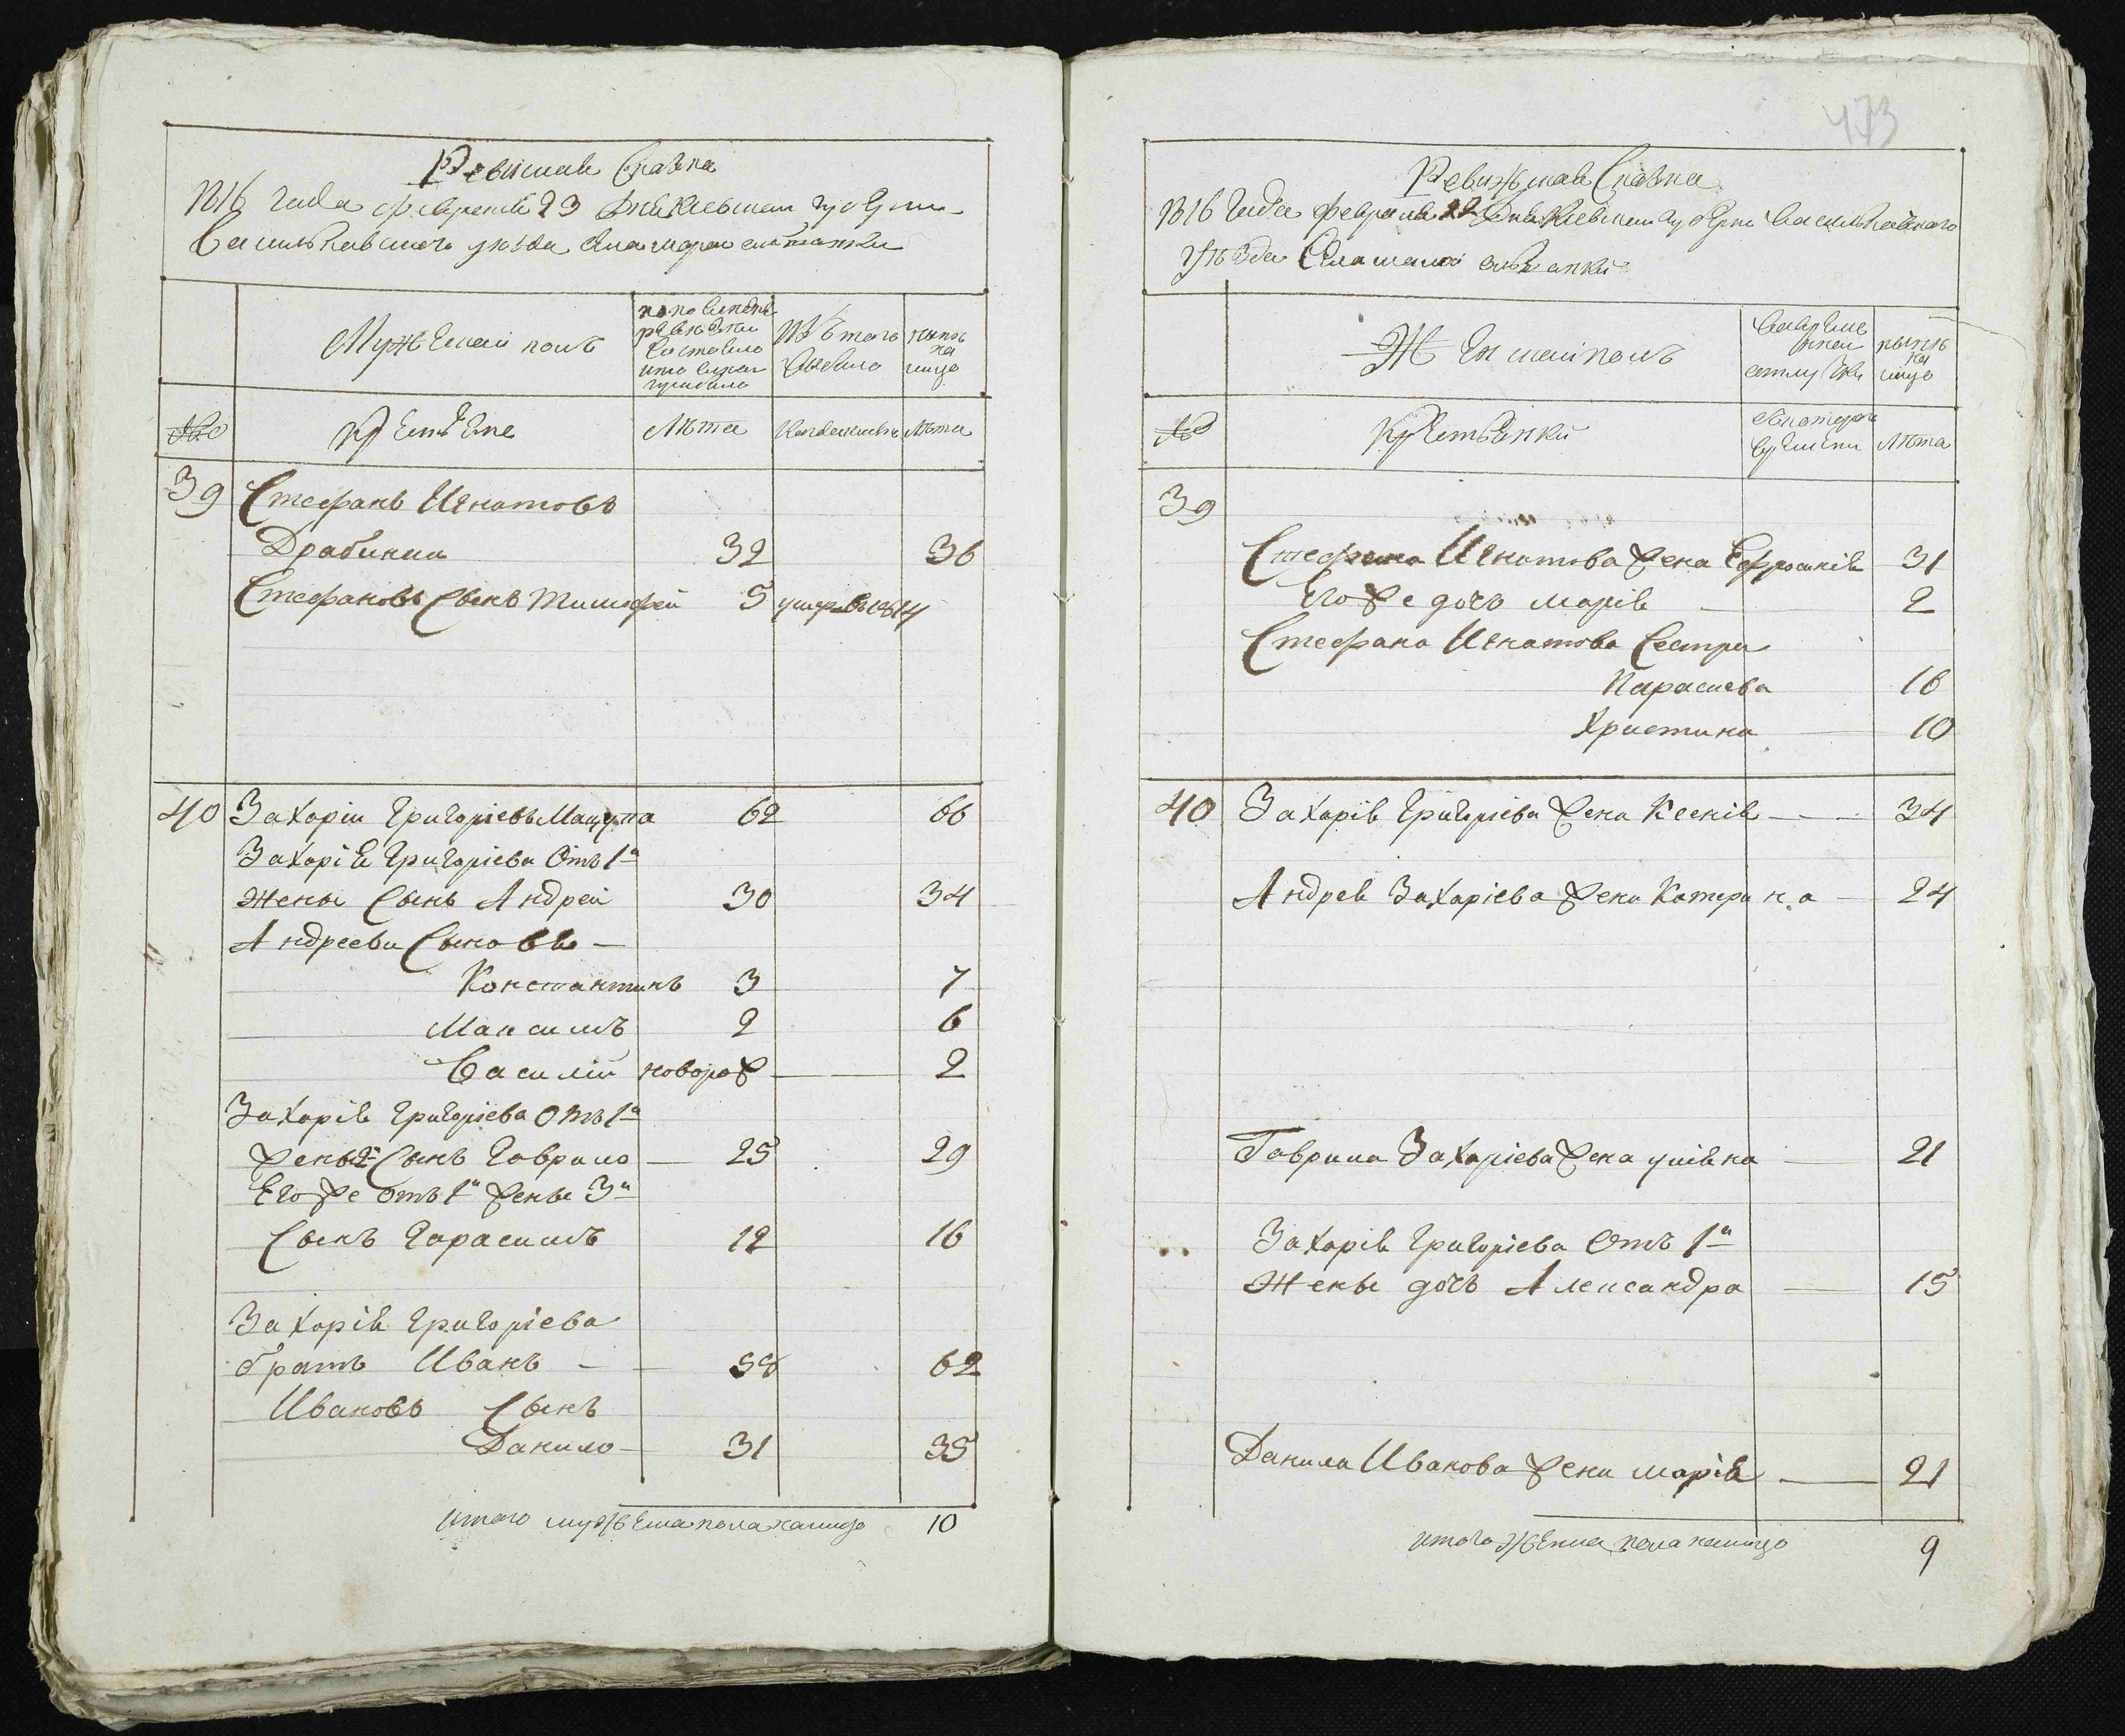 Ревизкая Сказка
1816 года февраля 23 дня Киевской губернии
Васильковскаго уезда
Мужеский полъ
по последней ревизии состояло и после оной прибыло
Изъ того выбыло
ныне на лицо
№
Крестьяне
Лета
Когда именно
Лета
39 Стефанъ Игнатовъ
Драбиния 32 36
Стефановъ Сынъ Тимофей 5 умре въ 1814
40 Захарій Григоріевъ Мацупа 62 66
Захарія Григоріева Отъ 1й
жены Сынъ Андрей 30 34
Андреевы Сыновья
Константинъ 3 7
Максимъ 2 6
Василій новорож 2
Захарія Григоріева Отъ 1й
жены 2й Сынъ Гаврило 25 29
Его же отъ 1й жены 3й
Сынъ Гарасимъ 12 16
Захарія Григоріева
братъ Иванъ 58 62
Ивановъ Сынъ
Данило 31 35
итого мужеска пола налицо 10
473
Ревижская Сказка
1816 года февраля дня Киевской губернии Васильковскаго
уезда
Женский полъ
Во временной отлучке
ныне на лицо
№
Крестьянки
Съ котораго времени
Лета
39
Стефана Игнатова жена Ефросинія 31
Его же дочь Марія 2
Стефана Игнатова Сестры
Параскева 16
Христина 10
40 Захарія Григоріева жена Ксенія 34
Андрея Захаріева жена Катерина 24
Гаврила Захаріева жена уліяна 21
Захарія Григоріева Отъ 1й
жены дочь Александра 15
Данила Иванова жена Марія 21
итого женска пола налицо 9